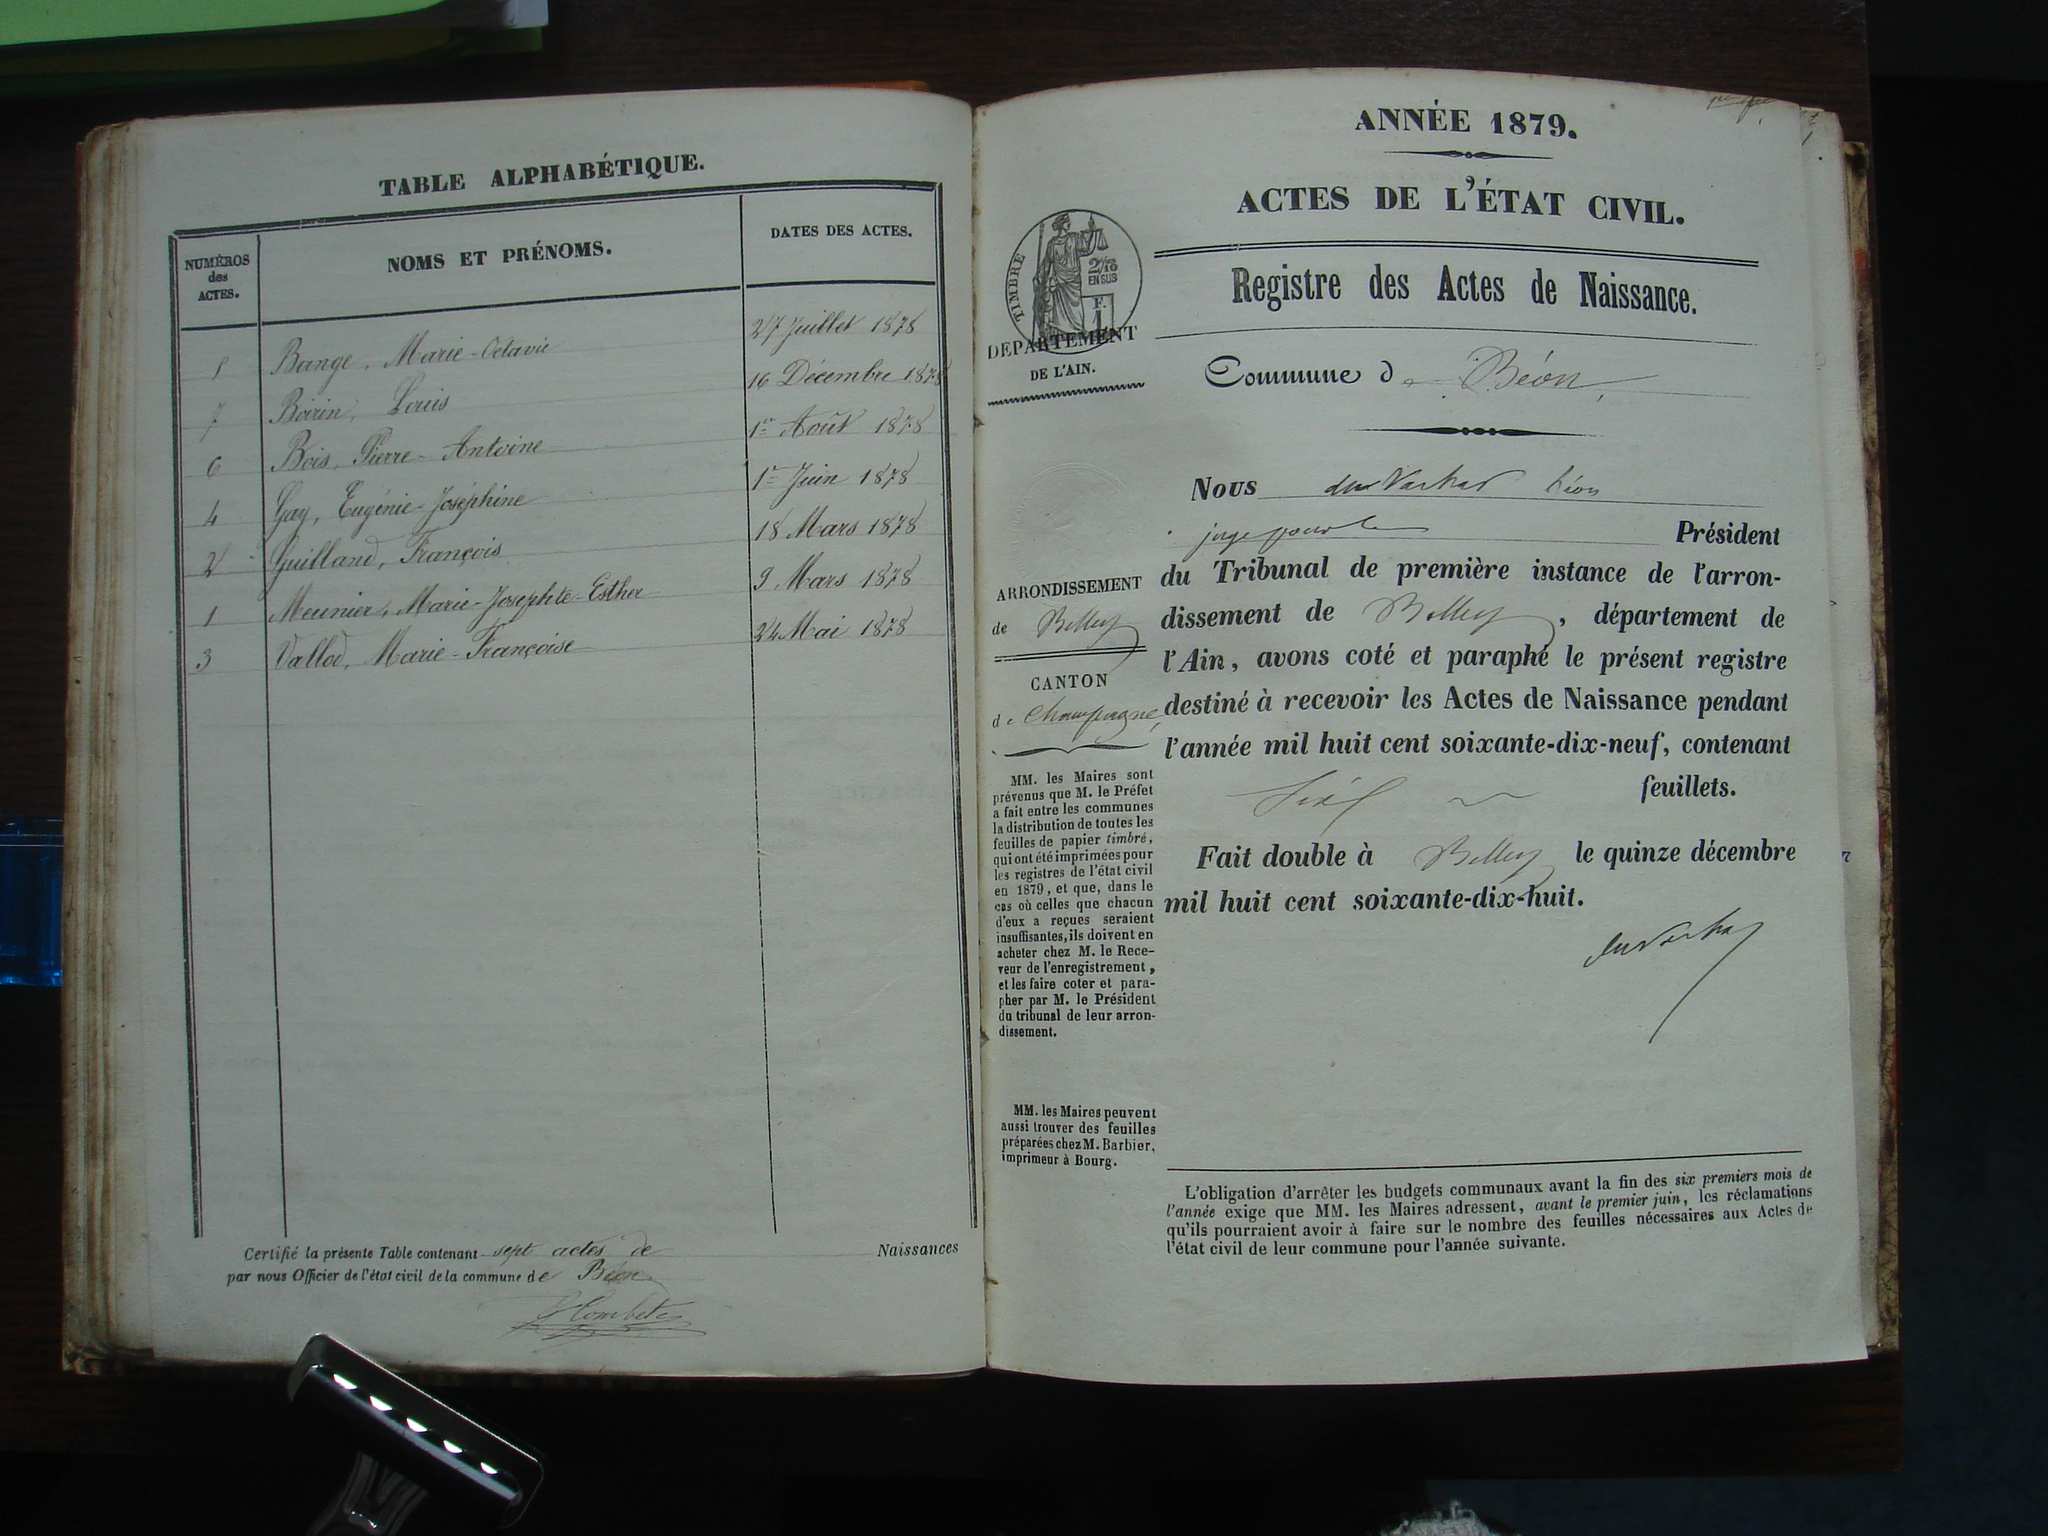 TABLE ALPHABÉTIQUE.
NUMÉROS
des
ACTES.
NOMS ET PRÉNOMS.
DATES DES ACTES.
Bange, Marie-Octavie 27 Juillet 1878
7 Boirin, Louis 16 Décembre 1878
6 Bois, Pierre-Antoine 1er Août 1878
4 Gay, Eugénie-Joséphine 1er Juin 1878
2 Guilland, François 18 Mars 1878
1 Meunier, Marie-Josephte-Esther 9 Mars 1878
3 Vallod, Marie-Françoise 24 Mai 1878
Certifié la présente Table contenant sept actes de Naissances
par nous Officier de l'état civil de la commune de Béon
ANNÉE 1879.
ACTES DE L'ÉTAT CIVIL.
TIMBRE
2/10
EN SUS
F.
1
DEPARTEMENT
DE L'AIN.
Registre des Actes de Naissance.
Commune de Béon
ARRONDISSEMENT
de Belley
CANTON
de Champagne
MM. les Maires sont
prévenus que M. le Préfet
a fait entre les communes
la distribution de toutes les
feuilles de papier timbré,
qui ont été imprimées pour
les registres de l'état civil
en 1879, et que, dans le
cas où celles que chacun
d'eux a reçues seraient
insuffisantes, ils doivent en
acheter chez M. le Rece-
veur de l'enregistrement,
et les faire coter et para-
pher par M. le Président
du tribunal de leur arron-
dissement.
MM. les Maires peuvent
aussi trouver des feuilles
préparées chez M. Barbier,
imprimeur à Bourg.
Nous
juge pour le Président
du Tribunal de première instance de l'arron-
dissement de Belley, département de
l'Ain, avons coté et paraphé le présent registre
destiné à recevoir les Actes de Naissance pendant
l'année mil huit cent soixante-dix-neuf, contenant
feuillets.
Fait double à Belley le quinze décembre
mil huit cent soixante-dix-huit.
L'obligation d'arrêter les budgets communaux avant la fin des six premiers mois de
l'année exige que MM. les Maires adressent, avant le premier juin, les réclamations
qu'ils pourraient avoir à faire sur le nombre des feuilles nécessaires aux Actes de
l'état civil de leur commune pour l'année suivante.